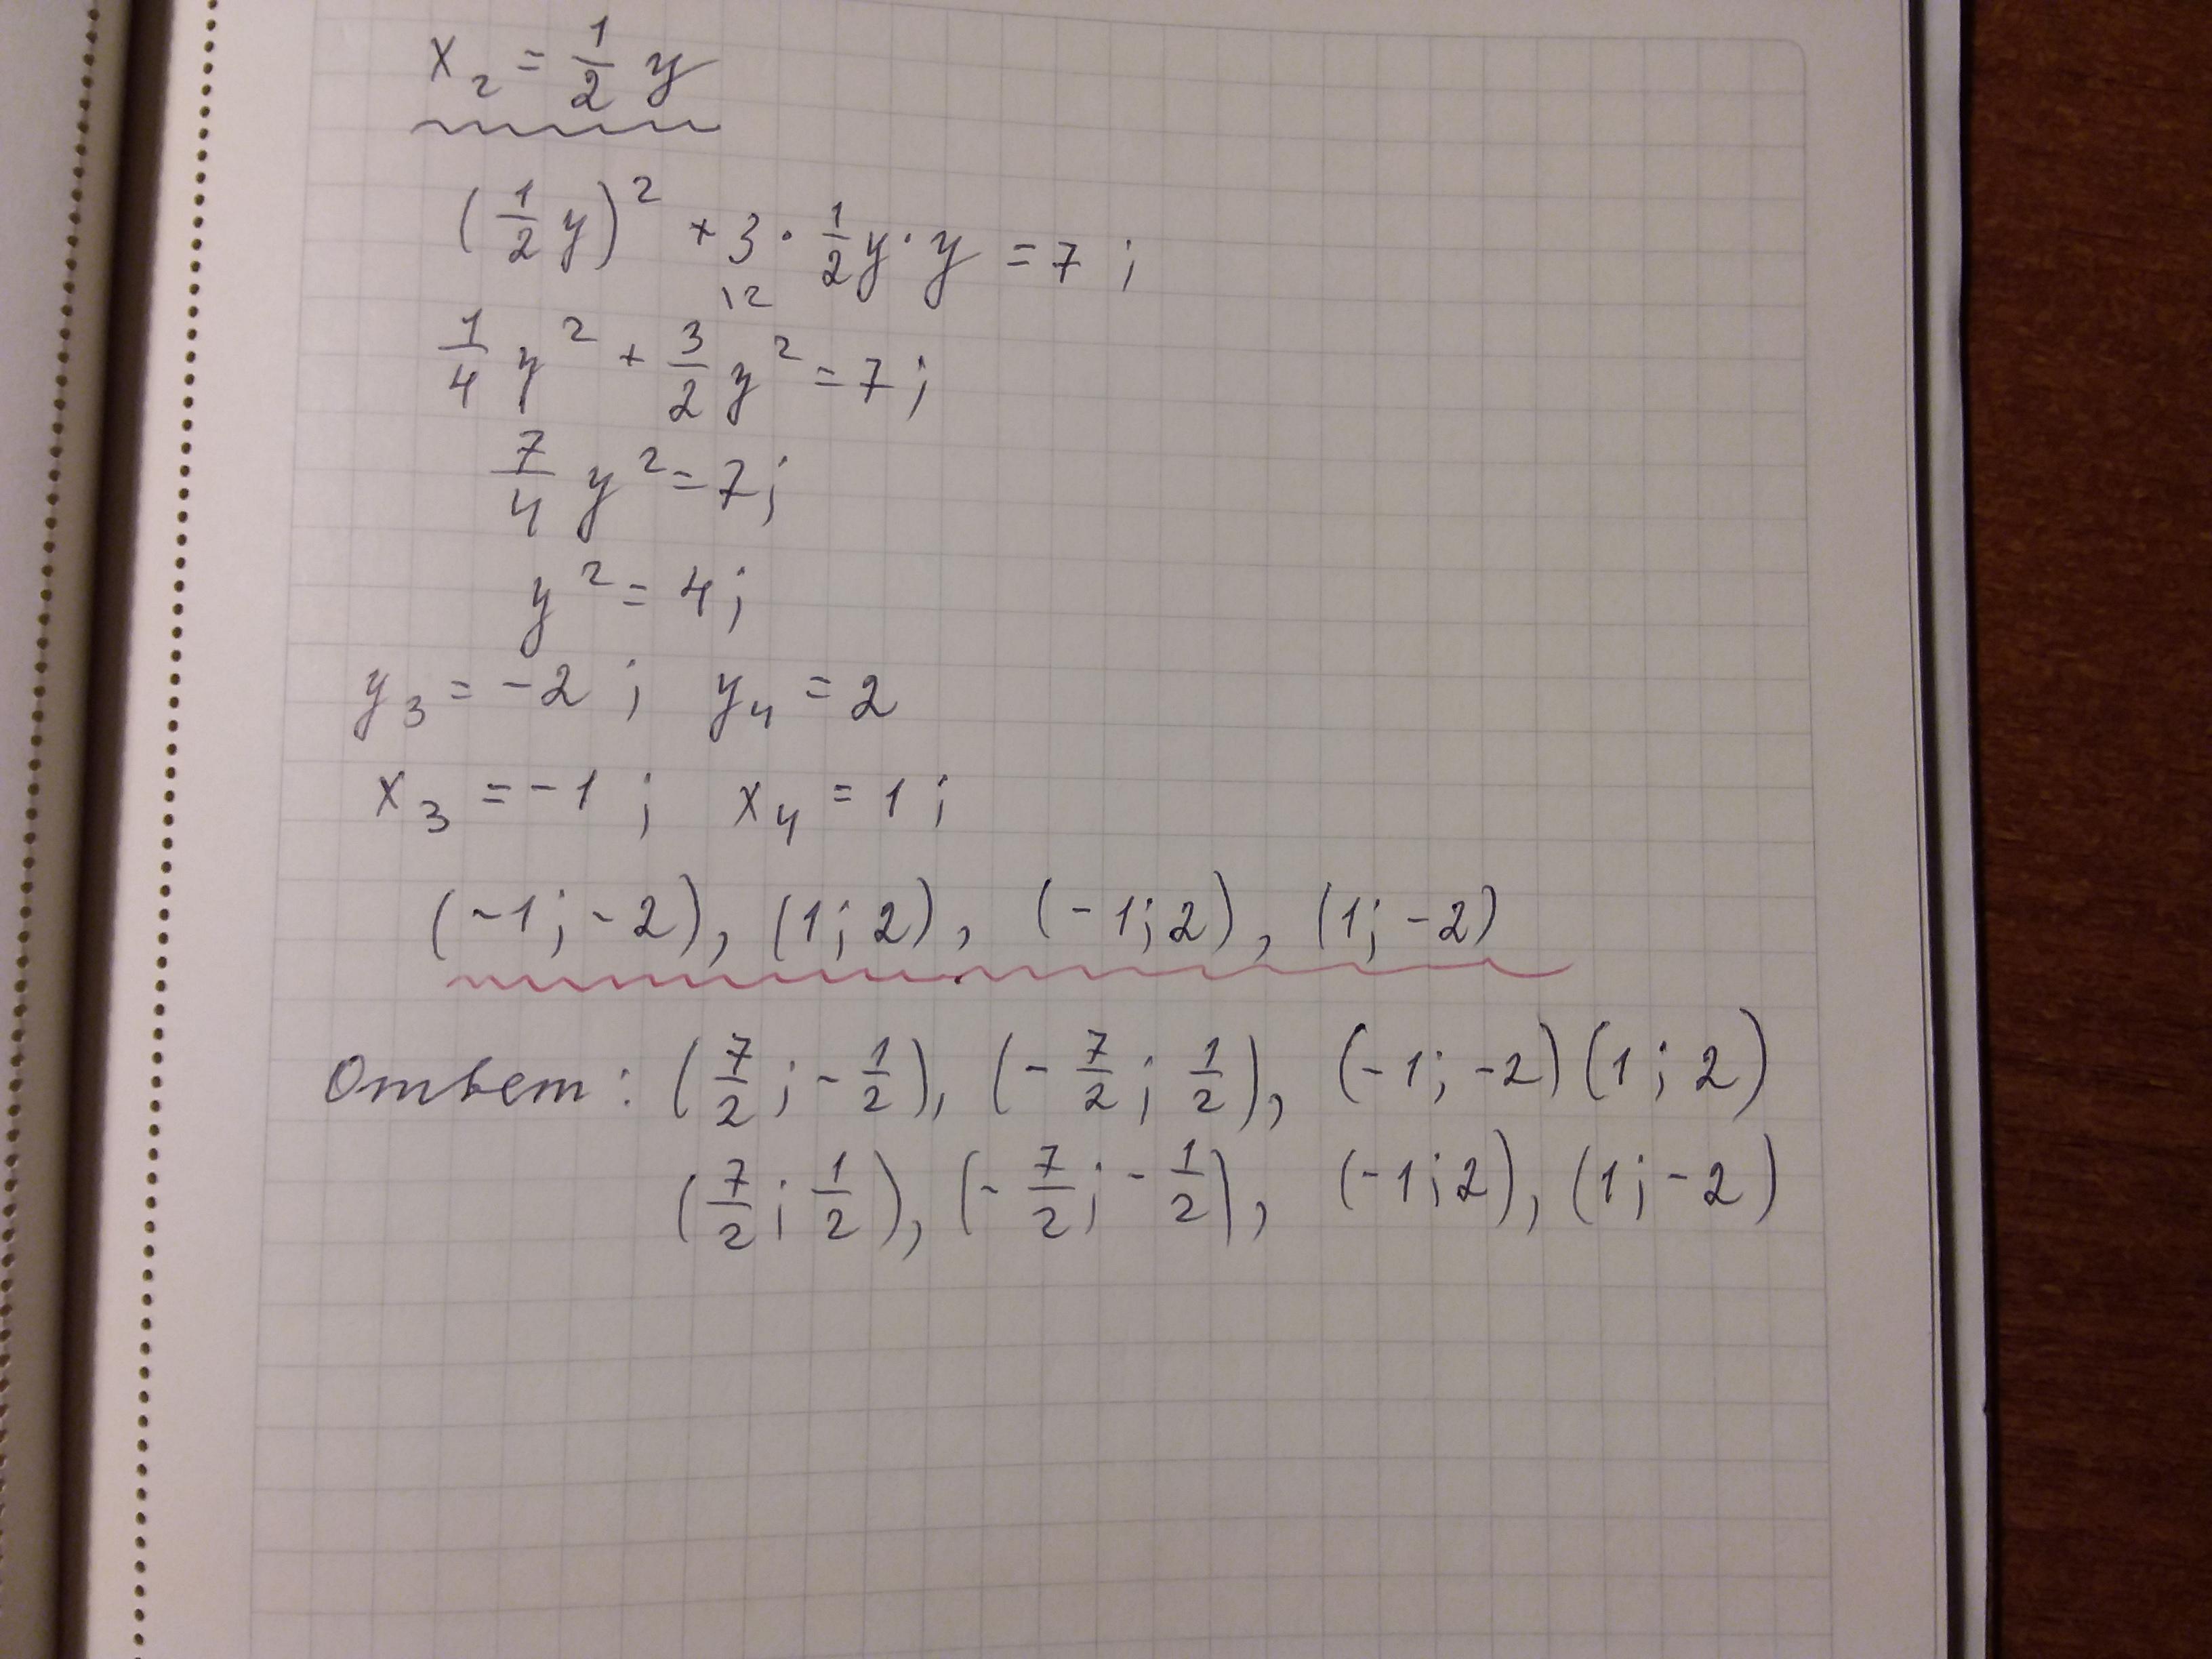 x₂ = 1/2 y
(1/2 y)² + 3 · 1/2 y · y = 7 ;
12
1/4 y² + 3/2 y² = 7 ;
7/4 y² = 7 ;
y² = 4 ;
y₃ = -2 ; y₄ = 2
x₃ = -1 ; x₄ = 1 ;
(-1 ; -2), (1 ; 2), (-1 ; 2), (1 ; -2)
Ответ : (7/2 ; -1/2), (-7/2 ; 1/2), (-1 ; -2) (1 ; 2)
(7/2 ; 1/2), (-7/2 ; -1/2), (-1 ; 2), (1 ; -2)